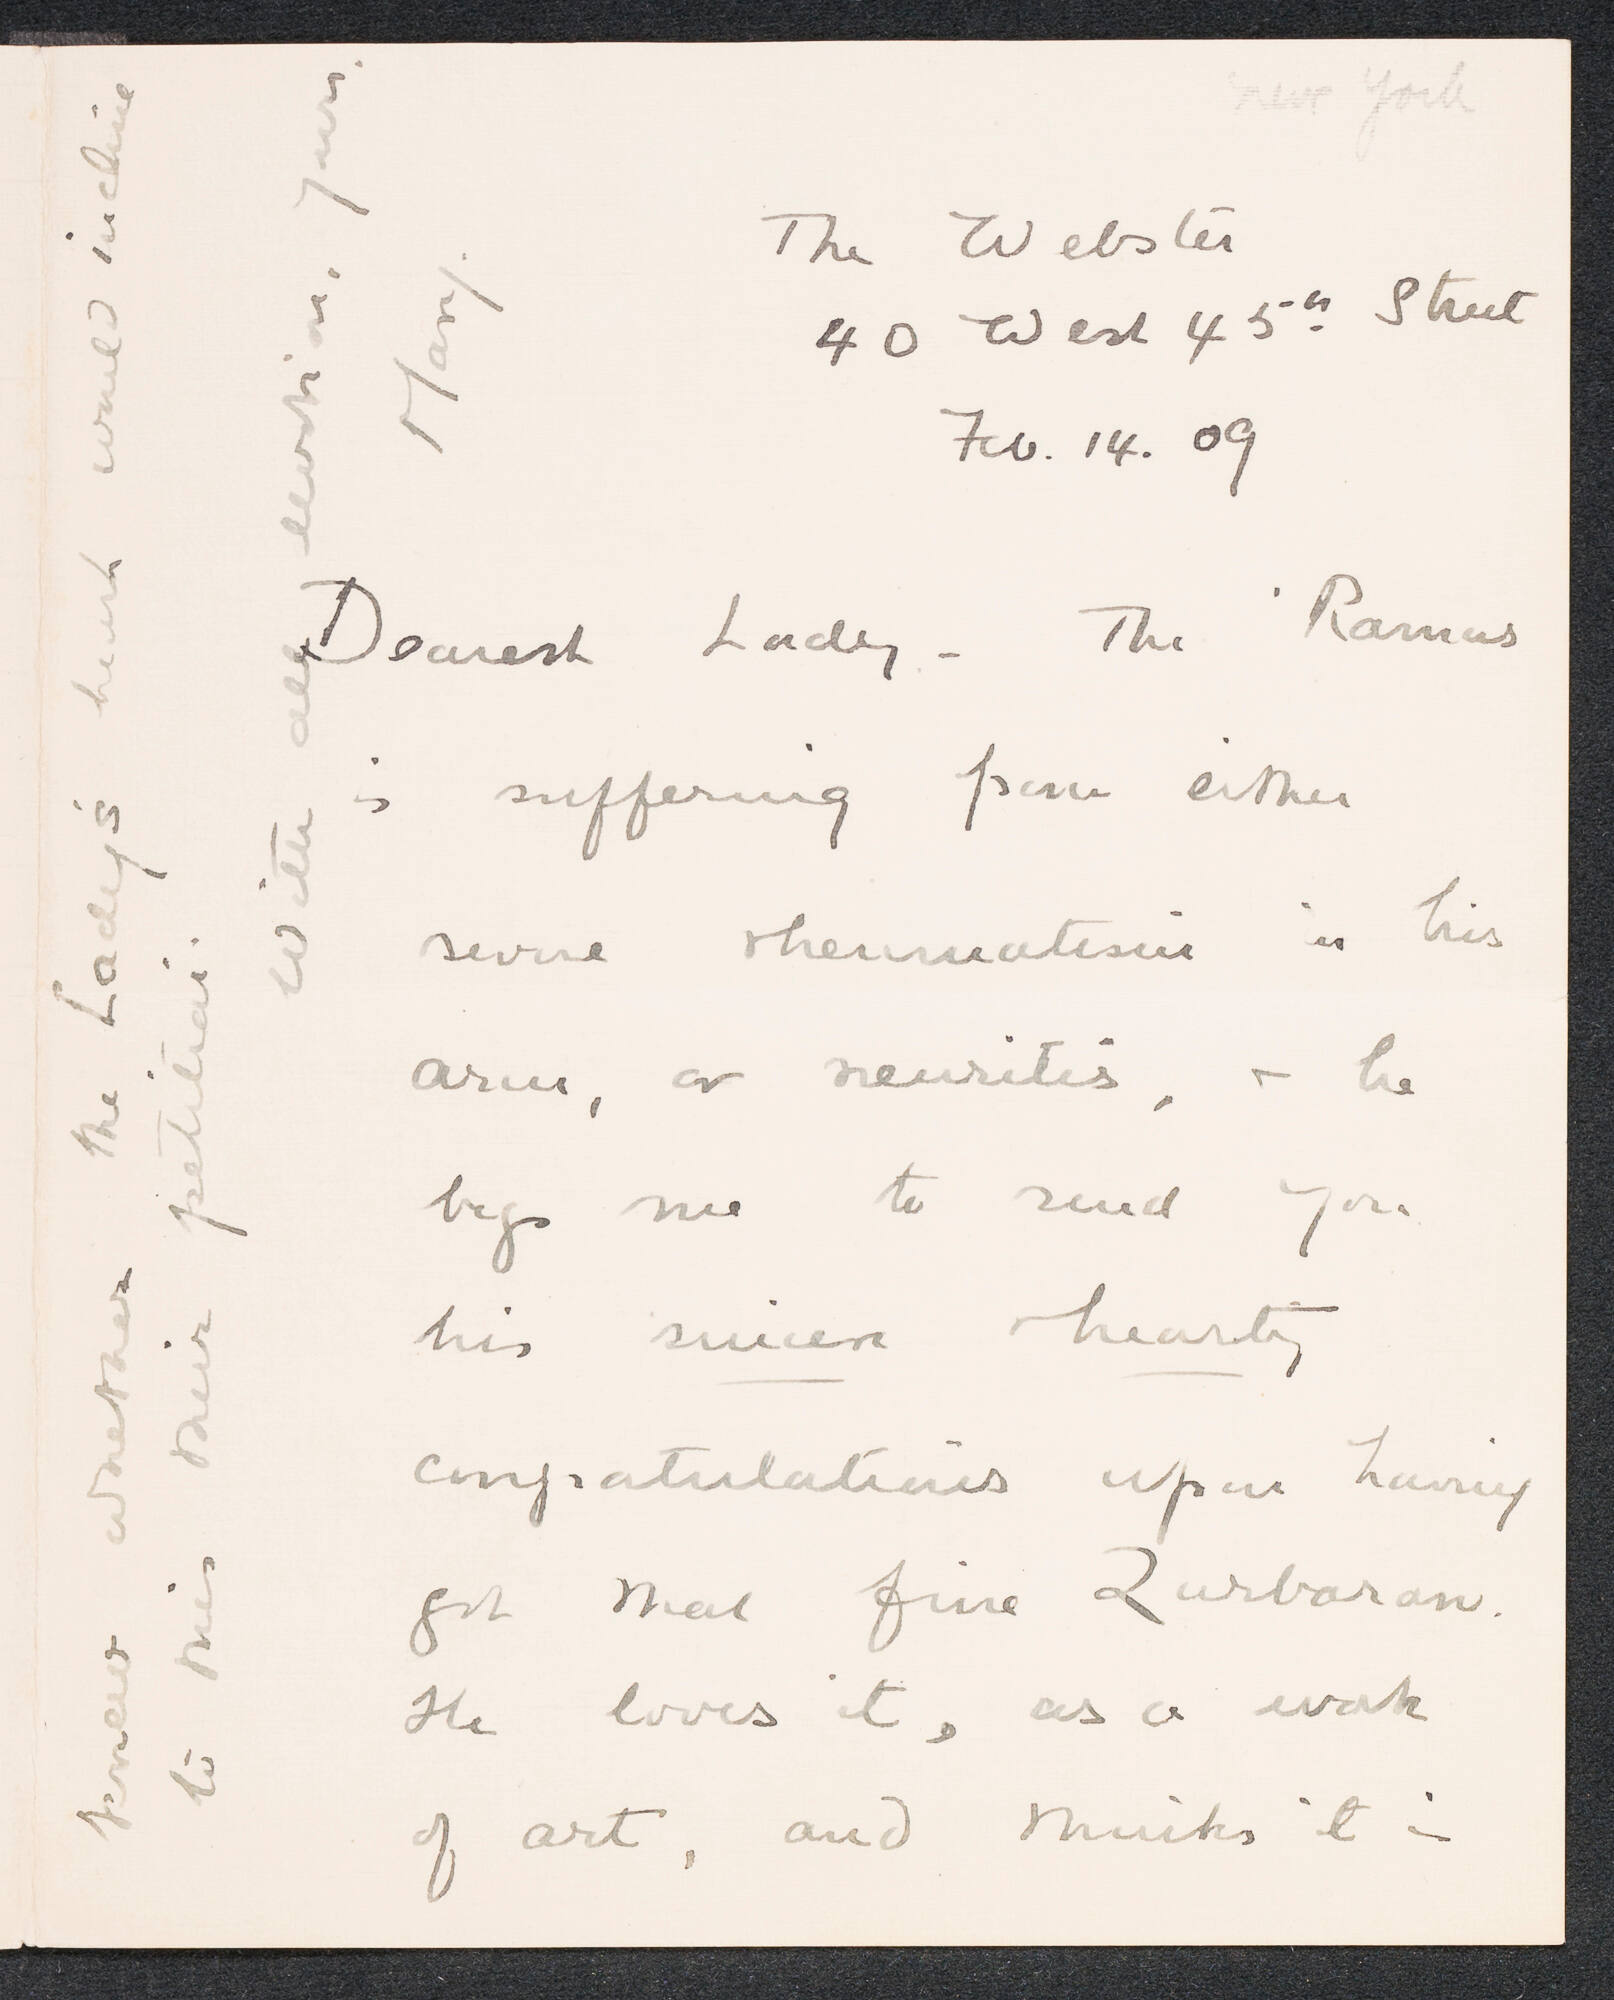 New York
The Webster
40 West 45th Street
Feb. 14. 09
Dearest Lady - The Ramus
is suffering from either
severe rheumatism in his
arm, or neuritis, + he
begs me to send you
his sincere + hearty
congratulations upon having
got that fine Zurbaran.
He loves it, as a work
of art, and thinks it is
power whether the Lady's heart would incline
to this their petition.
With all devotion, yours.
Mary.